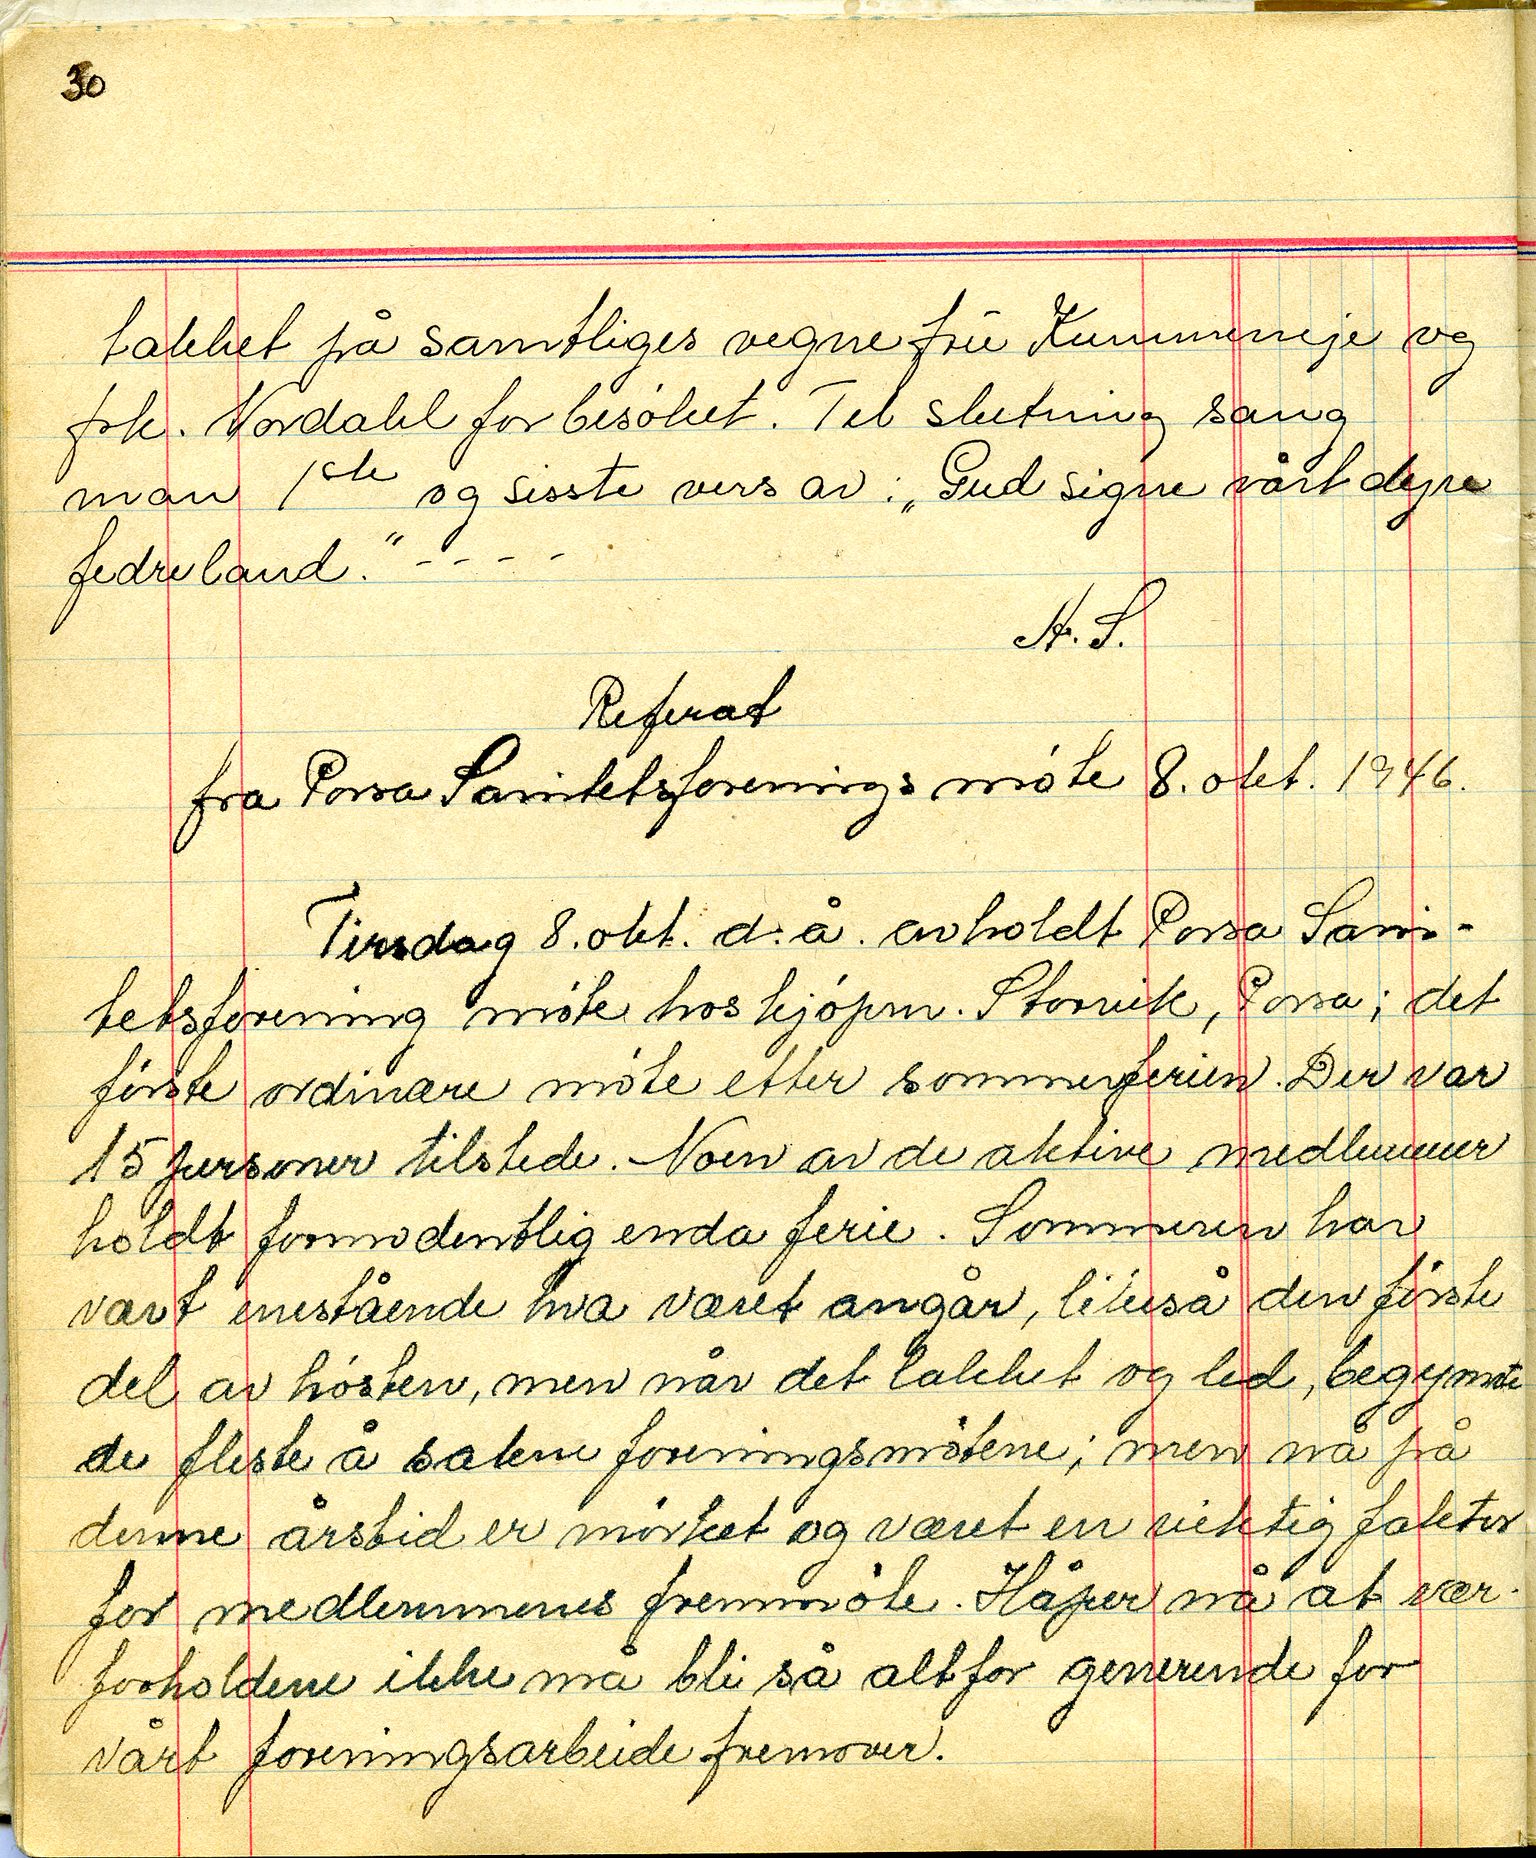 30
takket på samtliges vegne frü Kummeneje og
frk. Nordahl for besöket. Til slutning sang
man 1ste og sisste vers av: „Gud signe vårt dyre
fedreland." - - - -
H. S.
Referat
fra Porsa Sanitetsforenings möte 8. okt. 1946.
Tirsdag 8. okt. d. å. avholdt Porsa Sani-
tetsforening möte hos kjöpm. Storvik, Porsa; det
förste ordinære möte etter sommerferien. Der var
15 personer tilstede. Noen av de aktive medlemmer
holdt formodentlig enda ferie. Sommeren har
vært enestående hva været angår, likeså den förste
del av hösten, men når det lakket og led, begynnte
de fleste å sakne foreningsmötene; men nå på
denne årstid er mörket og været en viktig faktor
for medlemmenes fremmöte. Håper nå at vær-
forholdene ikke må bli så altfor generende for
vårt foreningsarbeide fremover.